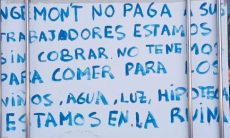 NGEMONT NO PAGA A SUS
TRABAJADORES ESTAMOS
SIN COBRAR. NO TENEMOS
PARA COMER PARA LOS
NIÑOS, AGUA, LUZ, HIPOTECA
ESTAMOS EN LA RUINA